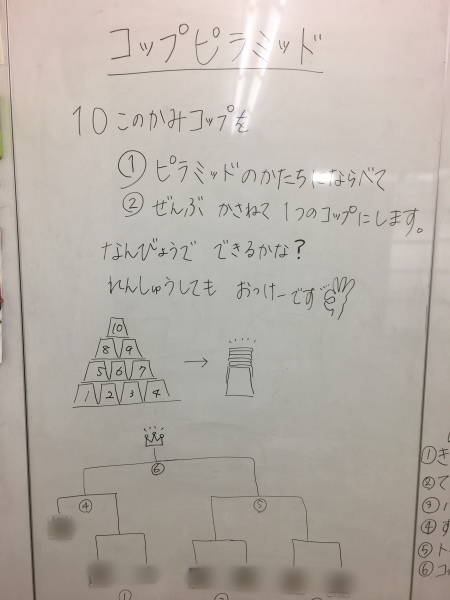 コップピラミッド
10このかみコップを
① ピラミッドのかたちにならべて
② ぜんぶ かさねて 1つのコップにします。
なんびょうで できるかな?
れんしゅうしても おっけーです
10
8 9
5 6 7
1 2 3 4
→
⑥
④ ⑤
① き
② て
③
④ す
⑤ ト
⑥ コッ